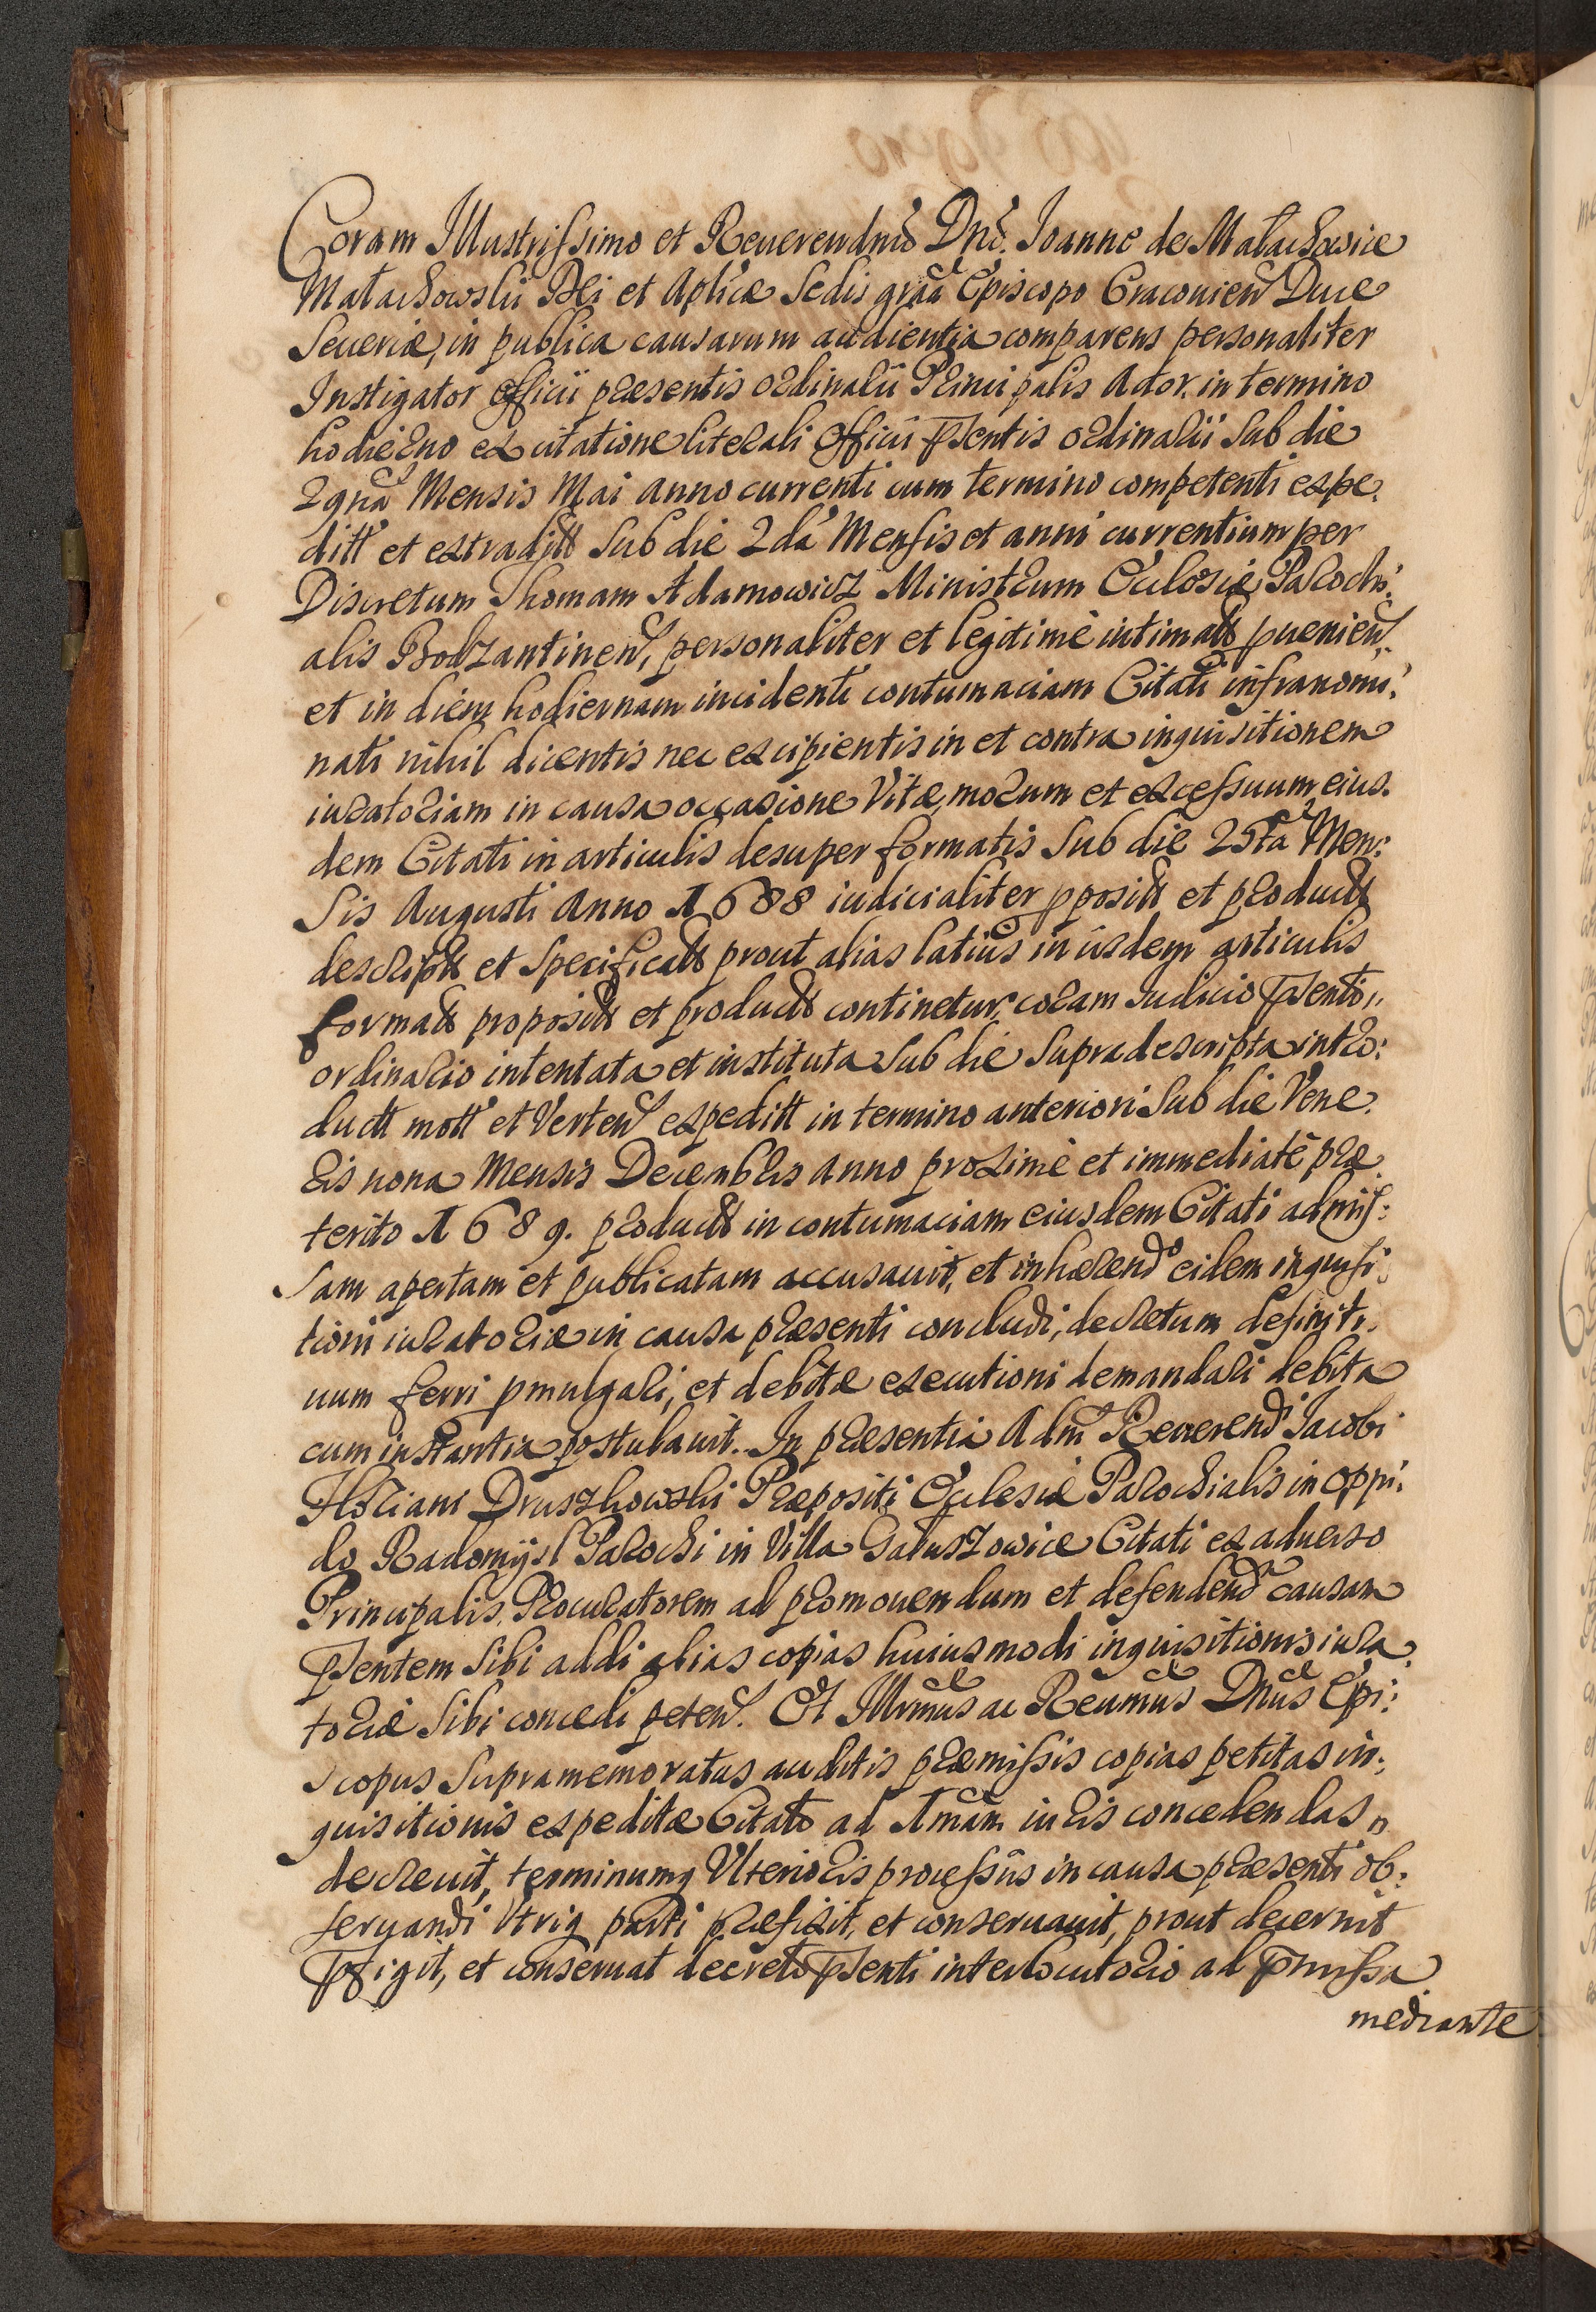 Coram Illustrissimo et Reuerendmo Dno. Ioanne de Małachowice
Małachowski Dei et Aplicæ Sedis grãa Episcopo Cracouien Duce
Seueriæ, in publica causarum audientia comparens personaliter
Instigator Officii præsentis ordinarii Principalis Actor. in termino
hodierno ex citatione literali Officii psentis ordinarii Sub die
Mensis Mai anno currenti cum termino competenti expe.
ditt et extraditt Sub die 2da Mensis et anni currentium per
Discretum Thomam Adamowicz Ministrum Ecclesiæ Parochi:
alis Bodzantinen, personaliter et legitimè intimatt puenien.
et in diem hodiernam incidenti contumaciam Citati infranomi:
nati nihil dicentis nec excipientis in et contra inquisitionem
iuratoriam in causa occasione Vitæ, morum et excessuum eius.
dem Citati in articulis desuper formatis Sub die 25ta Men:
Sis Augusti Anno 1688 iudicialiter pposit et product
descriptt et Specificatt prout alias latius in iisdem articulis
formatt propositt et productt continetur, coram Iudicio psenti,,
ordinario intentata et instituta Sub die Supradescripta intro:
ductt mott et Verten expeditt in termino anteriori Sub die Vene.
ris nona Mensis Decembris anno proximè et immediatè præ
terito 1689. productt in contumaciam eiusdem Citati admis:
Sam apertam et publicatam accusauit, et inhærend eidem inquisi:
tioni iuratoriæ in causa præsenti concludi, decretum definiti.
uum ferri pmulgari, et debitæ executioni demandari debita
cum instantia postulauit. In præsentia Adm Reuerendi Iacobi
Floriani Druszkowski Præpositi Ecclesiæ Parochialis in Oppi:
do Radomijsl Parochi in Villa Gałuszowice Citati ex aduerso
Principalis, Procuratorem ad promouendum et defendend causam
psentem Sibi addi alias copias huiusmodi inquisitionis iura.
toriæ Sibi concedi peten. Et Illrmus ac Reumus Dnus Epi:
scopus Supramemoratus auditis præmissis copias petitas in:
quisitionis expeditæ Citato ad iuris concedendas,,
decreuit, terminumq Vlterioris processus in causa præsenti ob:
seruandi Vtriq parti præfixit, et conseruauit, prout decernit
pfigit, et conseruat decreto psenti interlocutorio ad pmissa
mediante